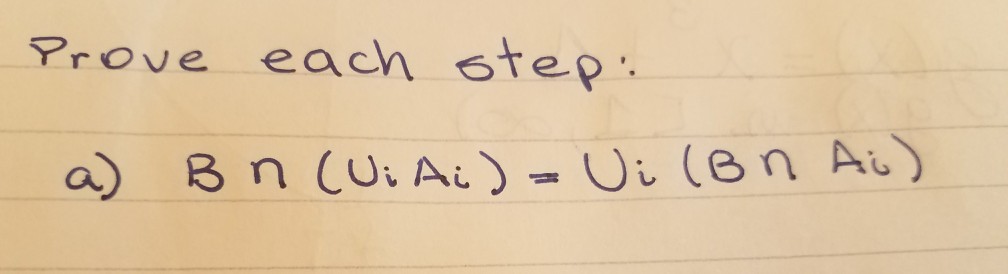 Prove each step:
a) B ∩ (∪i Ai) = ∪i (B ∩ Ai)